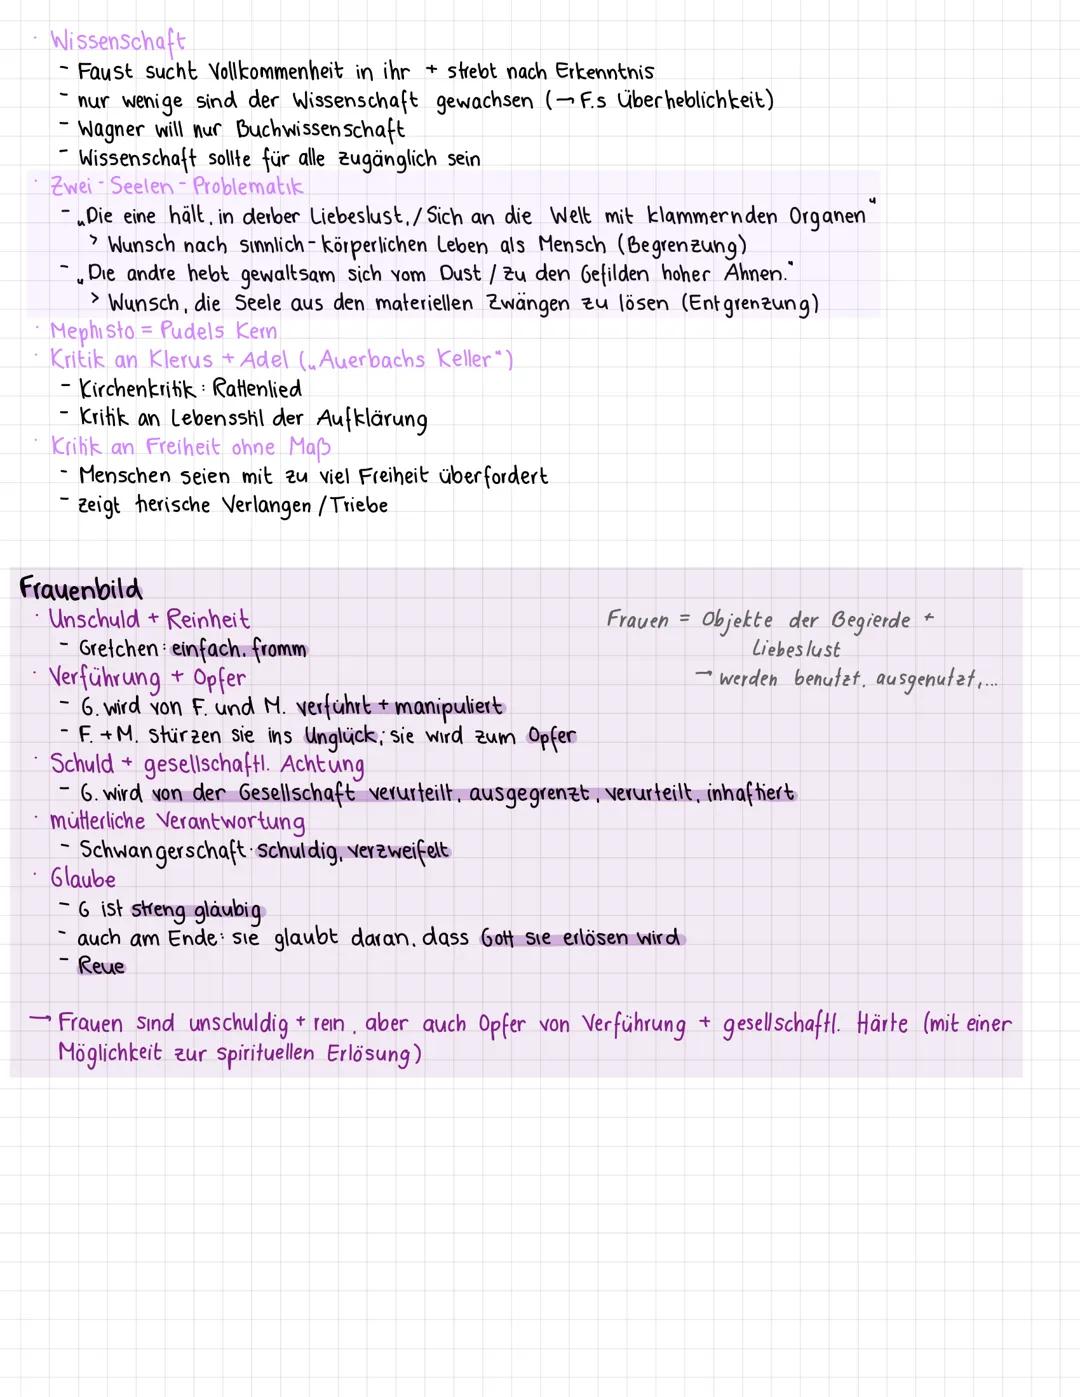 · Wissenschaft
- Faust sucht Vollkommenheit in ihr + strebt nach Erkenntnis
- nur wenige sind der Wissenschaft gewachsen (→ F.s Überheblichkeit)
- Wagner will nur Buchwissenschaft
- Wissenschaft sollte für alle zugänglich sein
· Zwei-Seelen-Problematik
- „Die eine hält, in derber Liebeslust,/Sich an die Welt mit klammernden Organen"
> Wunsch nach sinnlich-körperlichen Leben als Mensch (Begrenzung)
- „Die andre hebt gewaltsam sich vom Dust / zu den Gefilden hoher Ahnen."
> Wunsch, die Seele aus den materiellen Zwängen zu lösen (Entgrenzung)
· Mephisto = Pudels Kern
· Kritik an Klerus + Adel („Auerbachs Keller")
- Kirchenkritik: Rattenlied
- Kritik an Lebensstil der Aufklärung
· Kritik an Freiheit ohne Maß
- Menschen seien mit zu viel Freiheit überfordert
- zeigt tierische Verlangen / Triebe
Frauenbild
· Unschuld + Reinheit
- Gretchen: einfach, fromm
Frauen = Objekte der Begierde +
Liebeslust
→ werden benutzt, ausgenutzt,...
· Verführung + Opfer
- G. wird von F. und M. verführt + manipuliert
- F. + M. stürzen sie ins Unglück; sie wird zum Opfer
· Schuld + gesellschaftl. Achtung
- G. wird von der Gesellschaft verurteilt, ausgegrenzt, verurteilt, inhaftiert
· mütterliche Verantwortung
- Schwangerschaft: schuldig, verzweifelt
· Glaube
- G ist streng gläubig
- auch am Ende: sie glaubt daran, dass Gott sie erlösen wird
- Reue
→ Frauen sind unschuldig + rein, aber auch Opfer von Verführung + gesellschaftl. Härte (mit einer
Möglichkeit zur spirituellen Erlösung)